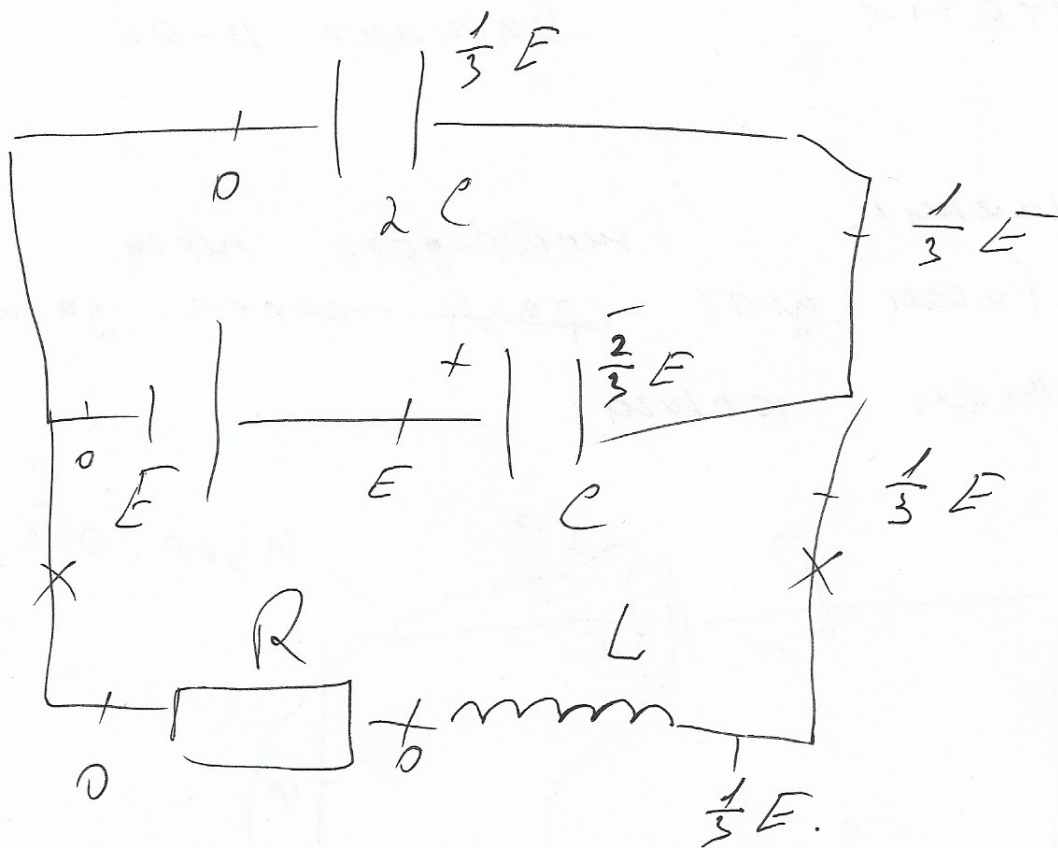 1/3 E
0
2 C
1/3 E
+
2/3 E
0
E
E
C
1/3 E
R
L
0
0
1/3 E.